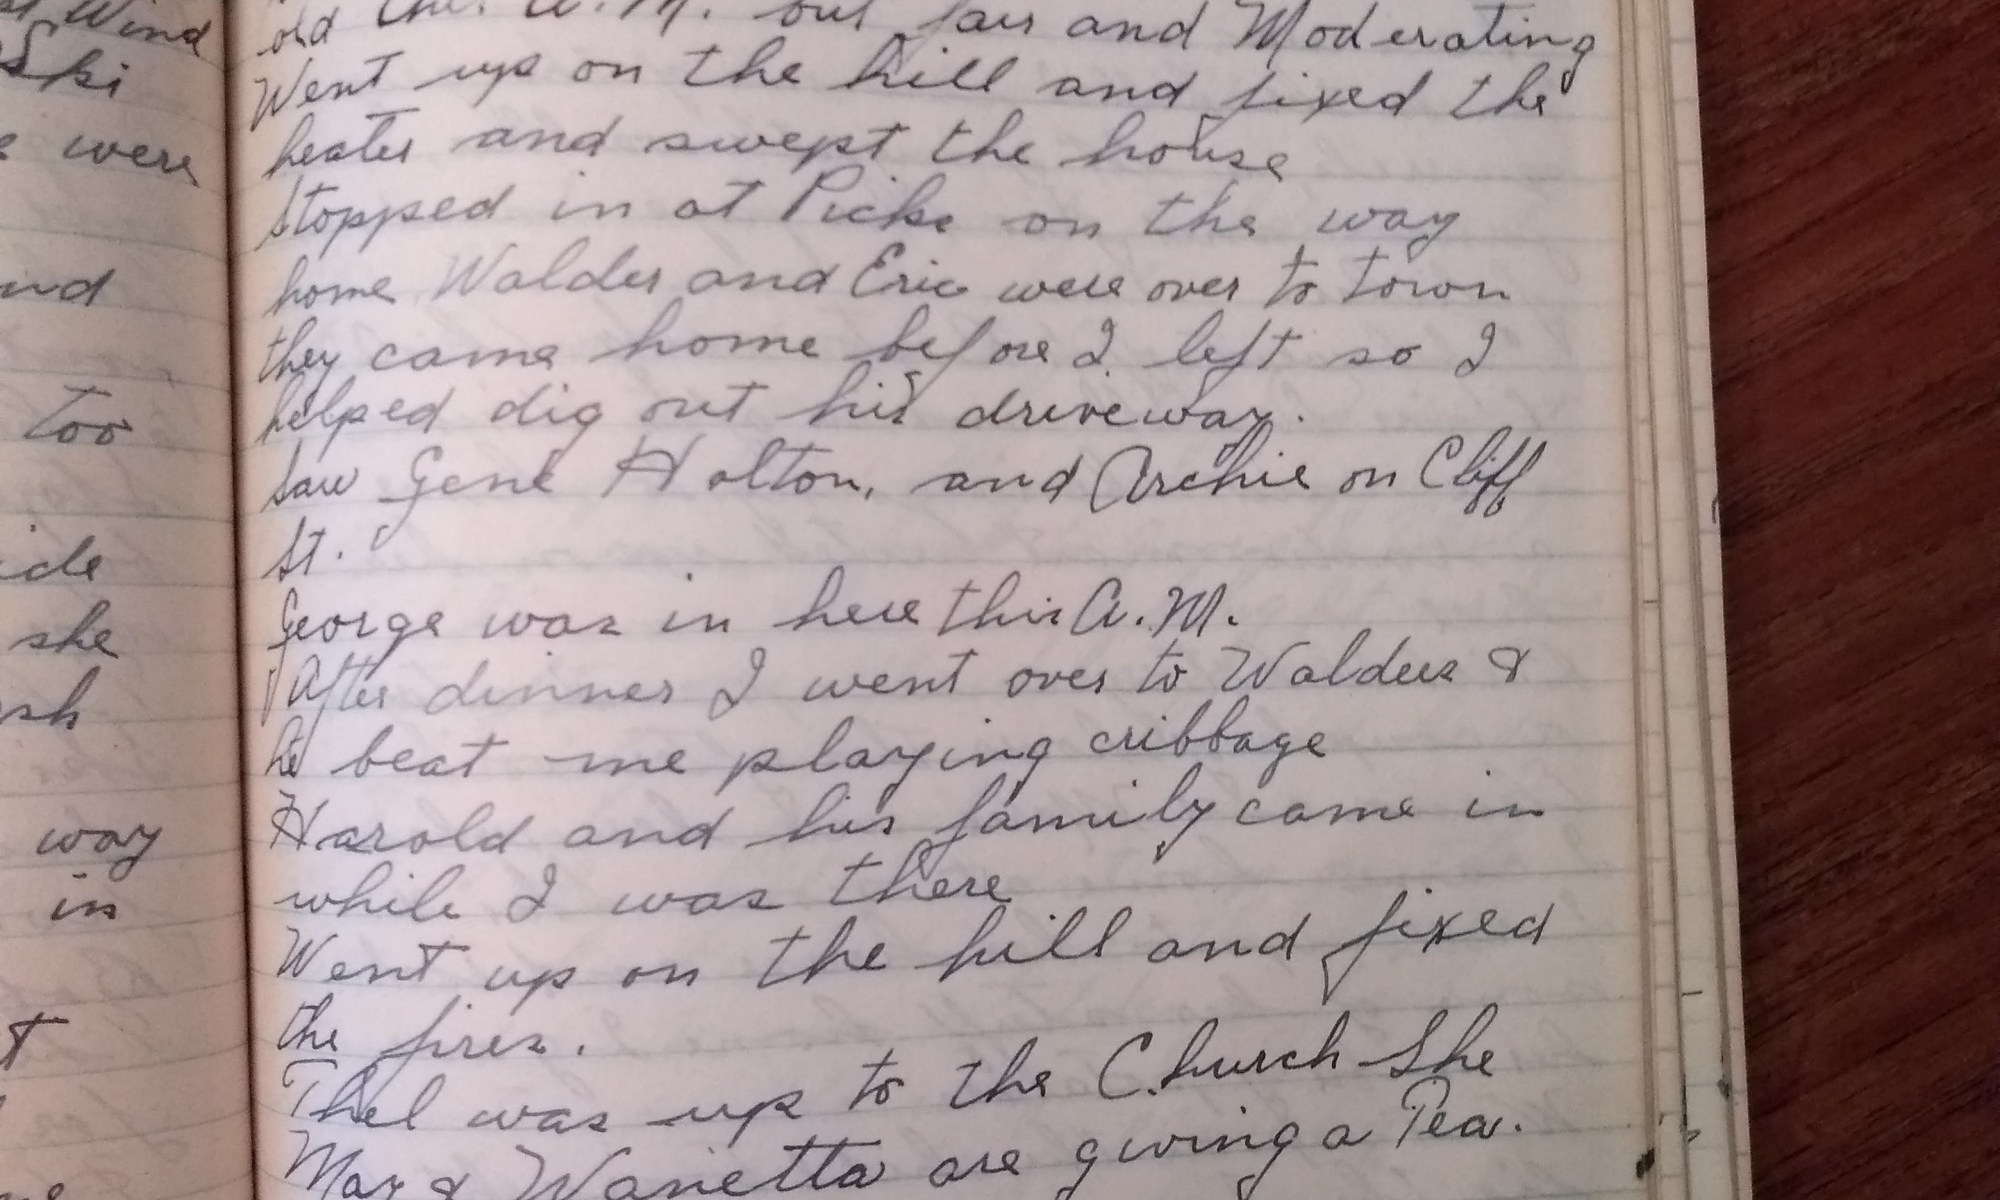 Wind
Ski
were
too
she
way
in
old this A.M. but fair and Moderating
Went up on the hill and fixed the
heater and swept the house
Stopped in at Picks on the way
home Walder and Eric were over to town
they came home before I left so I
helped dig out his driveway.
Saw Gene Holton, and Archie on Cliff
St.
George was in here this A.M.
After dinner I went over to Walders &
he beat me playing cribbage
Harold and his family came in
while I was there
Went up on the hill and fixed
the fires.
Thel was up to the Church She
May & Wanetta are giving a Tea.